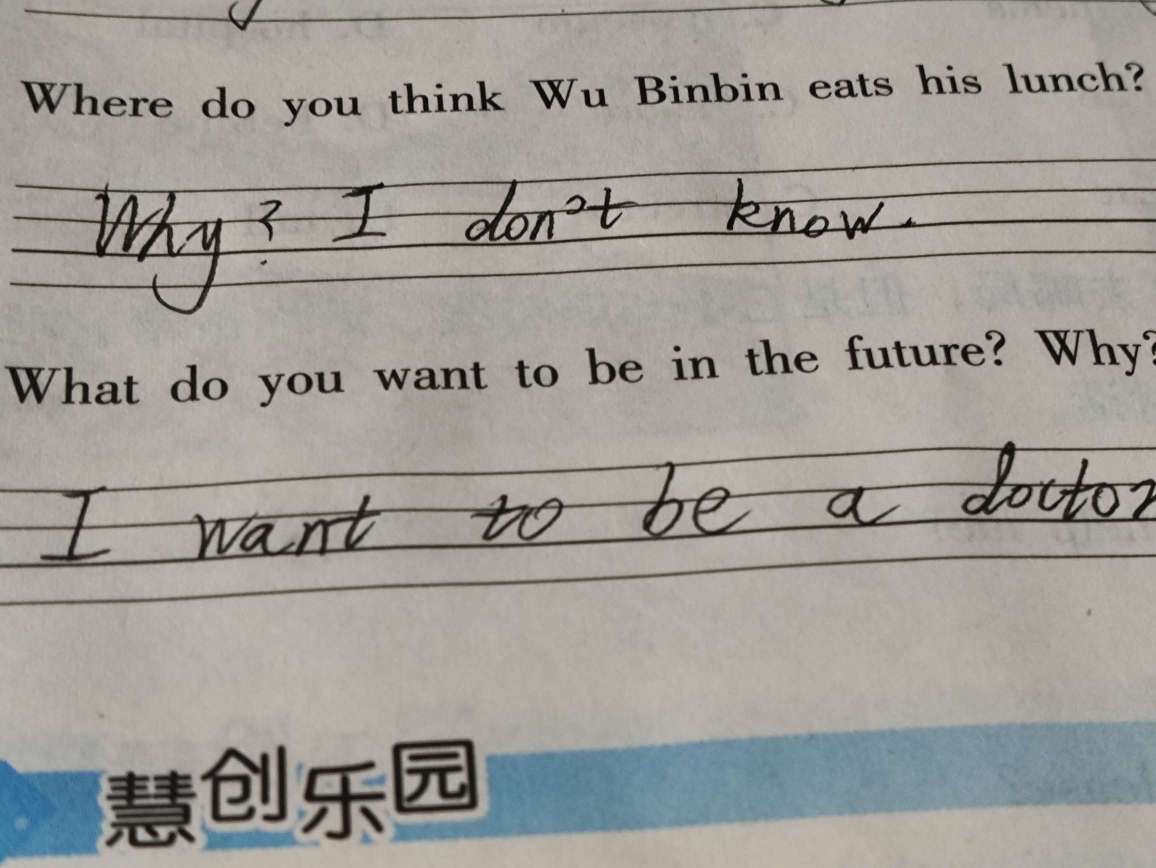 Where do you think Wu Binbin eats his lunch?
Why? I don't know.
What do you want to be in the future? Why?
I want to be a doctor
慧创乐园